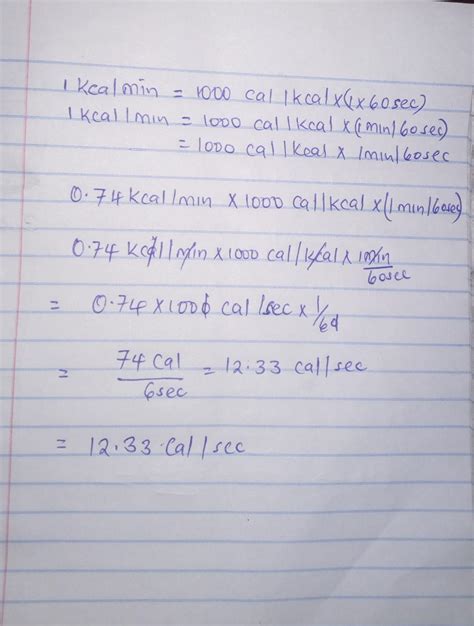 1 Kcal min = 1000 cal 1kcal x (1x60sec)
1 Kcal/min = 1000 cal/kcal x (1min/60sec)
= 1000 cal/kcal x 1min/60sec
0.74kcal/min x 1000 cal/kcal x (1min/60sec)
0.74 kcal/min x 1000 cal/kcal x 1min
60sec
= 0.74 x 1000 cal/sec x 1/60
= 74 cal = 12.33 cal/sec
6sec
= 12.33 cal/sec